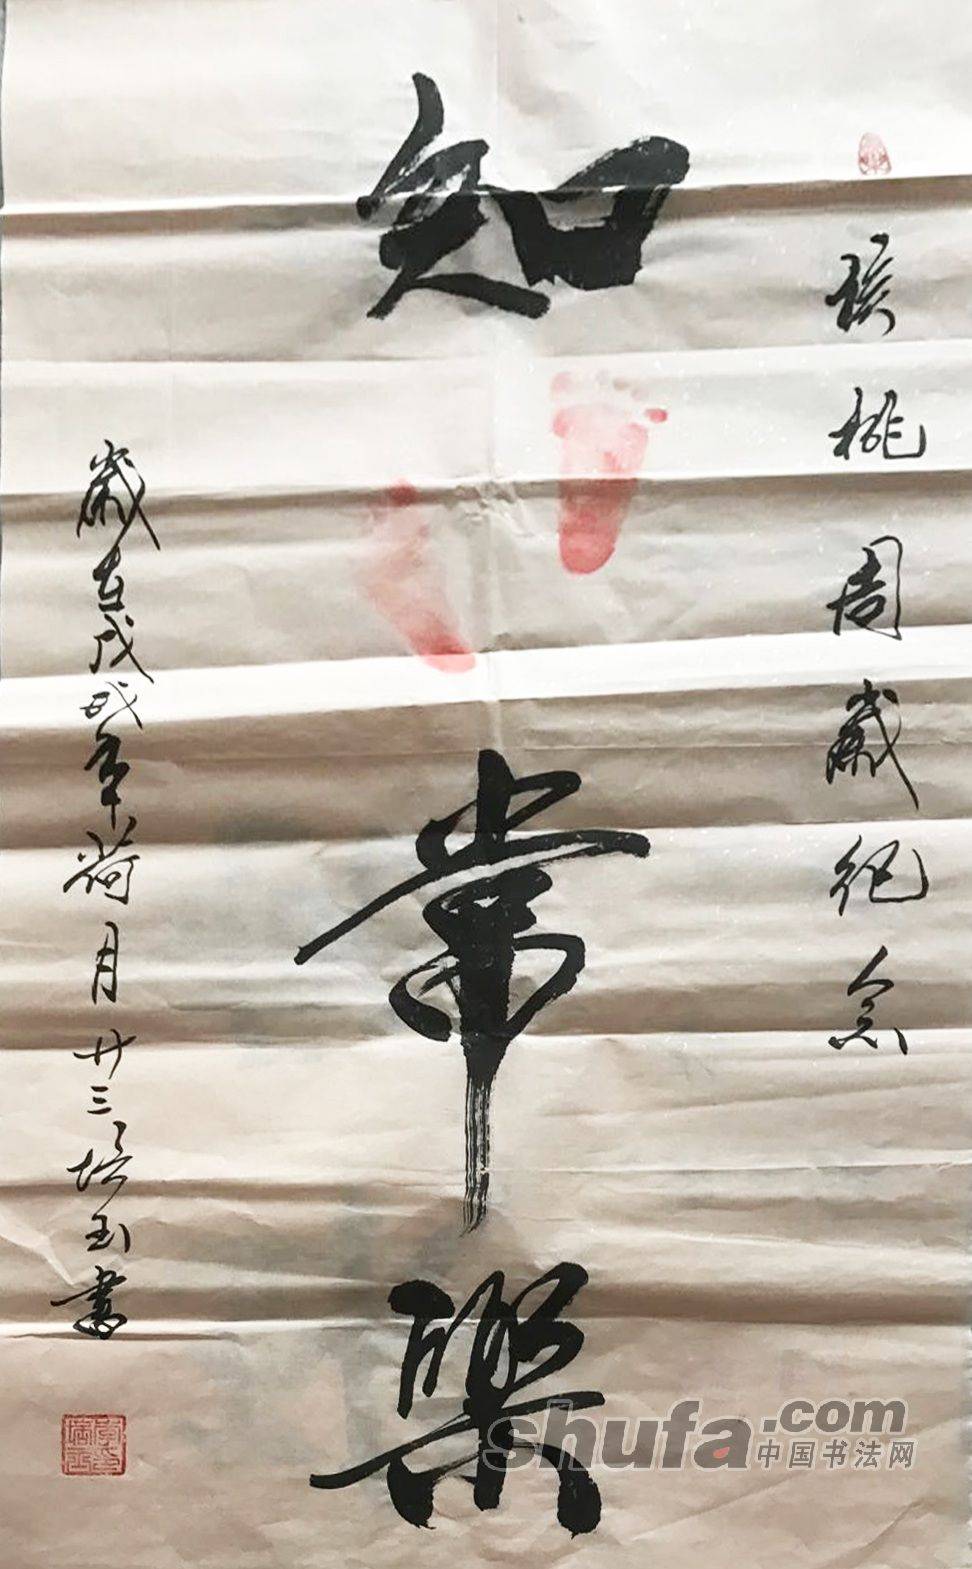 孩桃周歲紀念
知常樂
歲在戊戌年荷月廿三培玉書
shufa.com
中国书法网